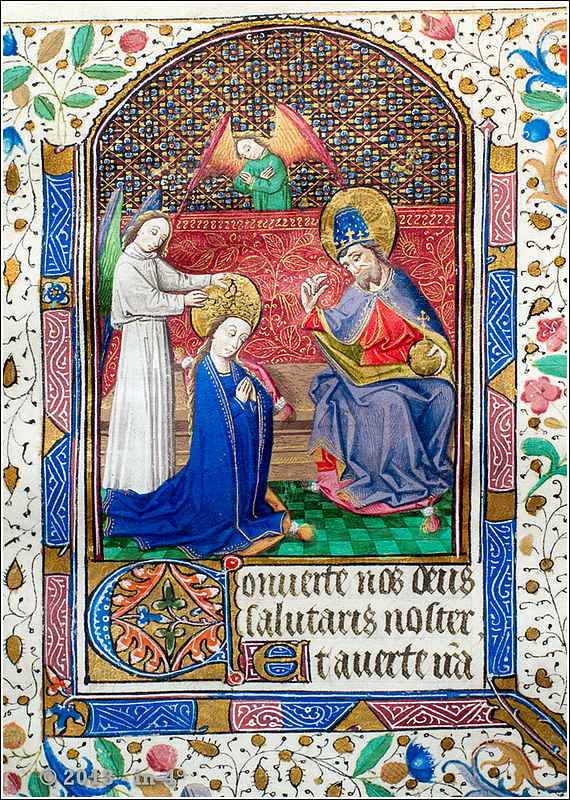 Conuerte nos deus
salutaris noster,
Et auerte iră
© 2013